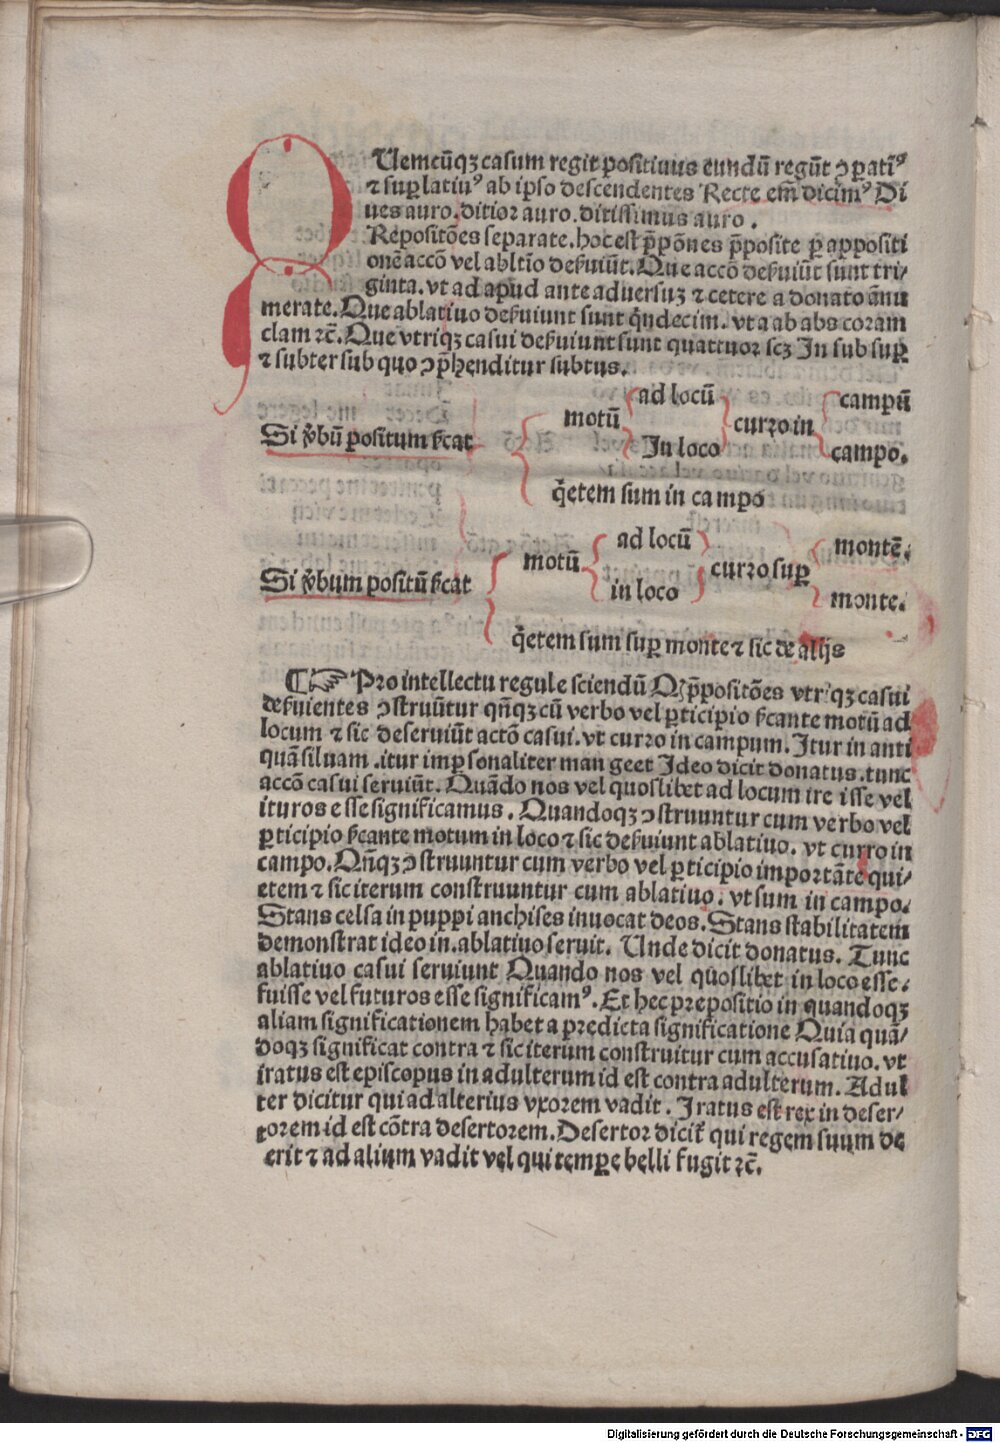 QUemcūqꝫ casum regit positiuus eundū regūt ↄꝑatiꝰ
⁊ suꝑlatiuꝰ ab ipso descendentes Recte em̄ dicimꝰ Di
ues auro. ditior auro. ditissimus auro.
Repositōes separate. hoc est p̄pōnes p̄posite ꝑ appositi
onē accō vel abltīo deẞuiūt. Que accō deẞuiūt sunt tri/
ginta. vt ad apud ante aduersuꝫ ⁊ cetere a donato ānu
merate. Que ablatiuo deẞuiunt sunt q̄ndecim. vt a ab abs coram
clam ⁊c̄. Que vtriqꝫ casui deẞuiunt sunt quattuor scꝫ In sub suꝑ
⁊ subter sub quo ↄp̄henditur subtus.
Si v̄bū positum ẞcat
motū
ad locū
In loco
curro in
campū
campo.
q̄etem sum in campo
Si v̄bum positū ẞcat
motū
ad locū
in loco
curro suꝑ
montē.
monte.
q̄etem sum suꝑ monte ⁊ sic de alijs
¶ ☞ Pro intellectu regule sciendū Qꝙ p̄positōes vtriqꝫ casui
deẞuientes ↄstruūtur qn̄qꝫ cū verbo vel ꝑticipio ẞcante motū ad
locum ⁊ sic deseruiūt actō casui. vt curro in campum. Itur in anti
quā siluam. itur imꝑsonaliter man geet Ideo dicit donatus. tunc
accō casui seruiūt. Quādo nos vel quoslibet ad locum ire isse vel
ituros esse significamus. Quandoqꝫ ↄstruuntur cum verbo vel
ꝑticipio ẞcante motum in loco ⁊ sic deẞuiunt ablatiuo. vt curro in
campo. Qn̄qꝫ ↄstruuntur cum verbo vel ꝑticipio importāte qui/
etem ⁊ sic iterum construuntur cum ablatiuo. vt sum in campo.
Stans celsa in puppi anchises inuocat deos. Stans stabilitatem
demonstrat ideo in. ablatiuo seruit. Unde dicit donatus. Tunc
ablatiuo casui seruiunt Quando nos vel quoslibet in loco esse.
fuisse vel futuros esse significamꝰ. Et hec prepositio in quandoqꝫ
aliam significationem habet a predicta significatione Quia quā/
doqꝫ significat contra ⁊ sic iterum construitur cum accusatiuo. vt
iratus est episcopus in adulterum id est contra adulterum. Adul
ter dicitur qui ad alterius vxorem vadit. Iratus est rex in deser/
torem id est cōtra desertorem. Desertor dicit̄ qui regem suum de
erit ⁊ ad alium vadit vel qui temꝑe belli fugit ⁊c̄.
Digitalisierung gefördert durch die Deutsche Forschungsgemeinschaft - DFG